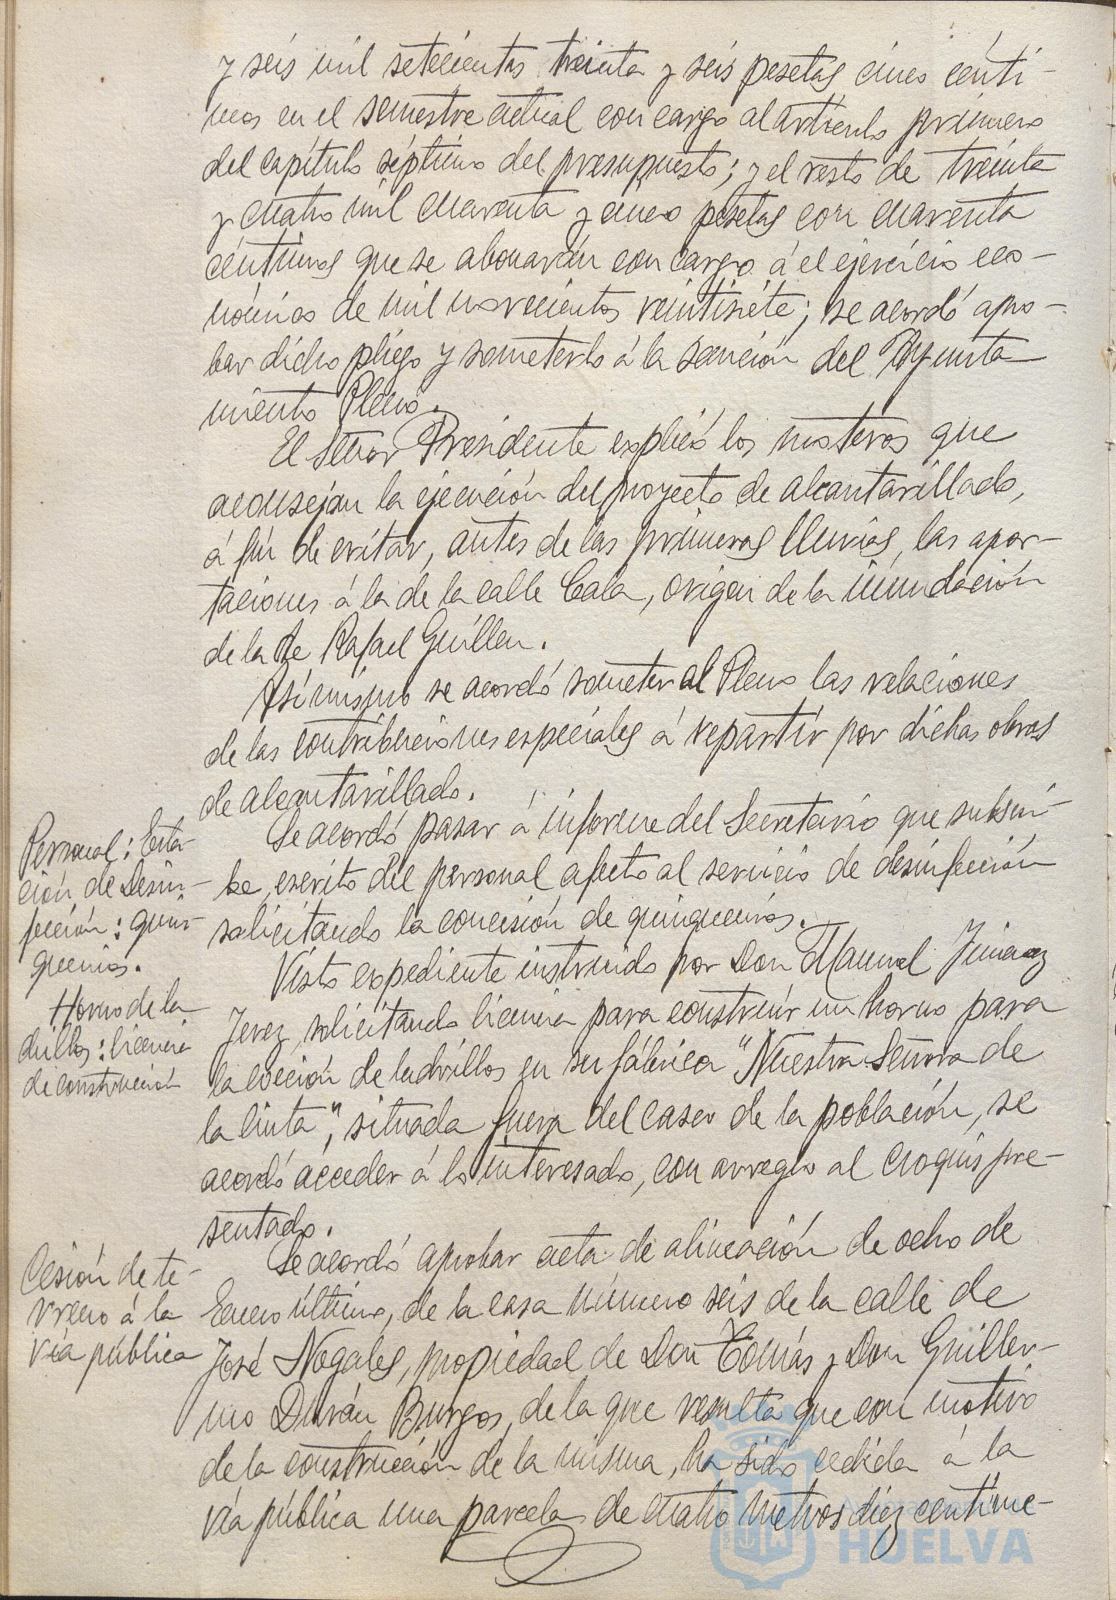 y seis mil setecientas treinta y seis pesetas cinco cénti-
mos en el semestre actual con cargo al artículo primero
del capítulo séptimo del presupuesto; y el resto de treinta
y cuatro mil cuarenta y cinco pesetas con cuarenta
céntimos que se abonarán con cargo á el ejercicio eco-
nómico de mil novecientos veintisiete; se acordó apro-
bar dicho pliego y someterlo á la sanción del Ayunta
miento Pleno.
El Señor Presidente explicó los motivos que
aconsejan la ejecución del proyecto de alcantarillado,
á fin de evitar, antes de las primeras lluvias, las apor-
taciones á la de la calle Cala, origen de la inundación
de la de Rafael Guillen.
Asimismo se acordó someter al Pleno las relaciones
de las contribuciones especiales á repartir por dichas obras
de alcantarillado.
Personal: Esta-
ción de Desin-
fección: quin-
quenios.
Se acordó pasar á informe del Secretario que subscri-
be, escrito del personal afecto al servicio de desinfección
solicitando la concesión de quinquenios.
Horno de la
drillos: licencia
de construcción
Visto expediente instruido por Don Manuel Jimenez
Jerez, solicitando licencia para construir un horno para
la cocción de ladrillos en su fábrica "Nuestra Señora de
la Cinta", situada fuera del casco de la población, se
acordó acceder á lo interesado, con arreglo al croquis pre-
sentado.
Cesión de te-
rreno á la
vía pública
Se acordó aprobar acta de alineación de ocho de
Enero último, de la casa número seis de la calle de
José Nogales, propiedad de Don Tomás y Don Guiller-
mo Durán Burgos, de la que resulta que con motivo
de la construcción de la misma, ha sido cedida á la
vía pública una parcela de cuatro metros diez centíme-
HUELVA